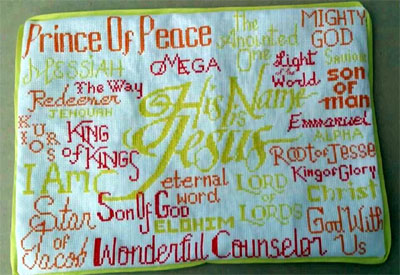 Prince Of Peace
The
Anointed
One
MIGHTY
GOD
MESSIAH
OMEGA
Light
of the
World
Saviour
son
of
man
The Way
Redeemer
JEHOVAH
His Name
is
Jesus
Emmanuel
ALPHA
KING
of KINGS
Root of Jesse
King of Glory
I AM
eternal
word
LORD
OF
LORDS
Christ
Star
of
Jacob
Son Of God
ELOHIM
God With
Us
Wonderful Counselor